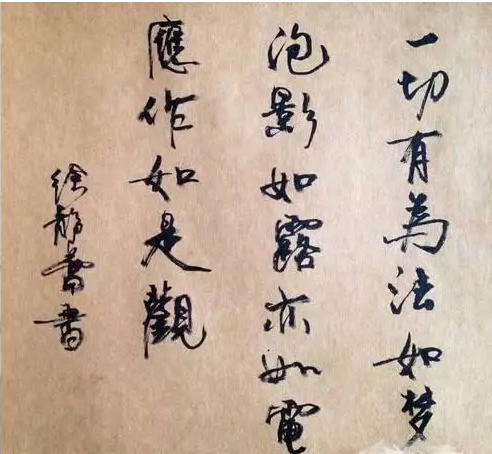 一切有為法如梦
泡影如露亦如電
應作如是觀
徐静蕾書